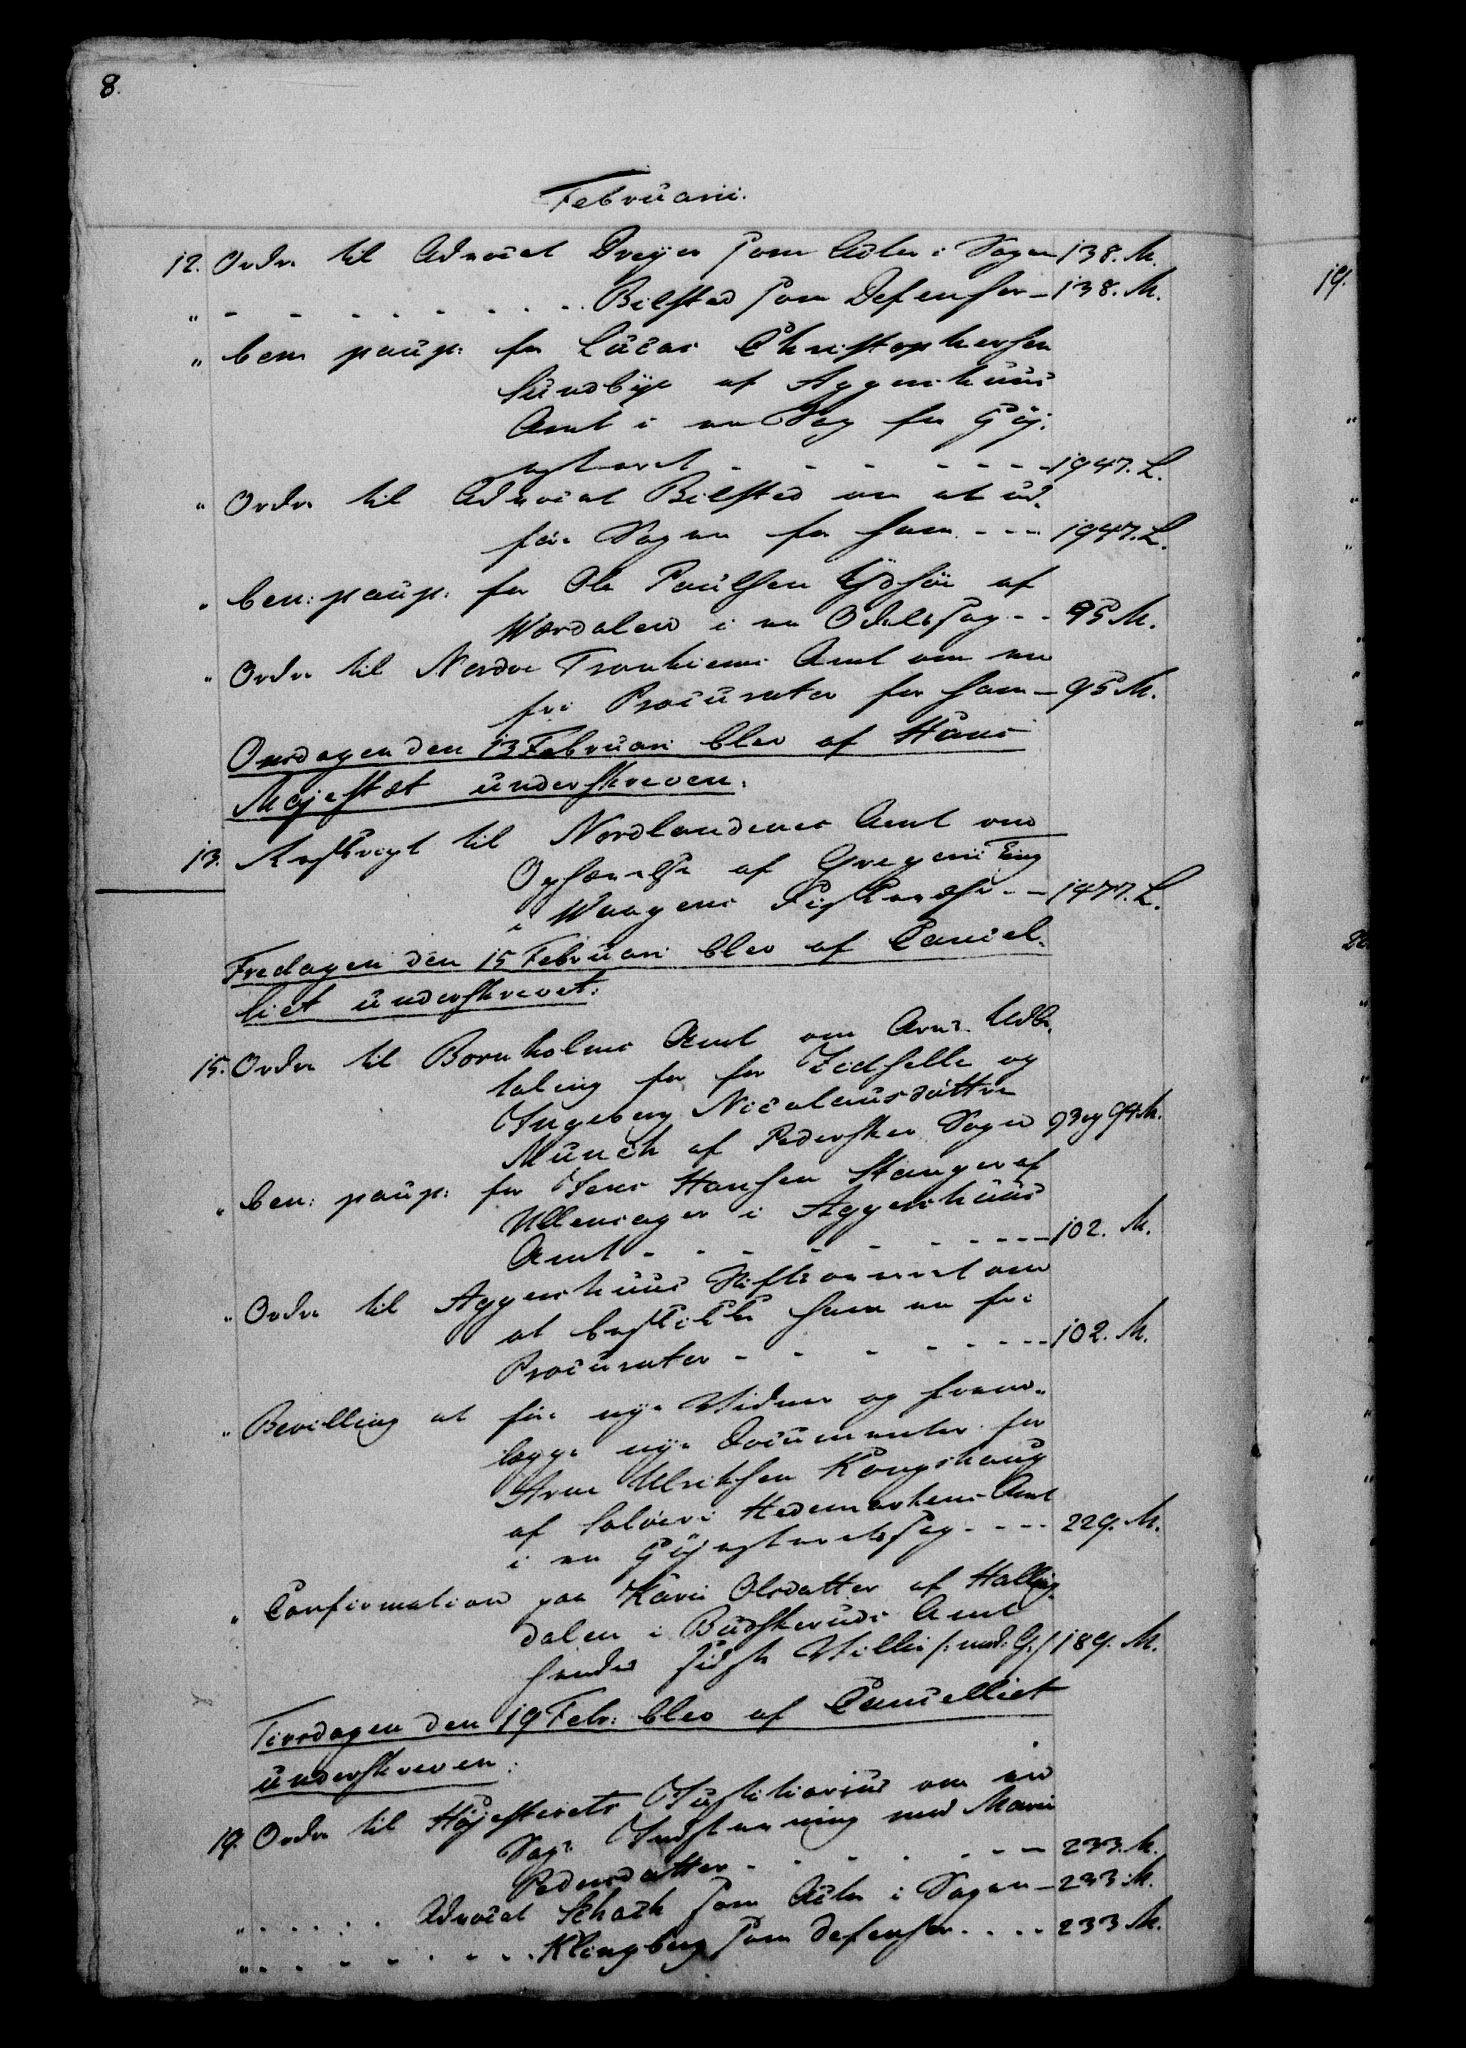 8.
Februarii.
12. Ordre til Advocat Dreyer som Actor i Sagen 138. M.
" - - - - - - - Bilsted som Defensor - 138. M.
" ben: paup: for Lucas Christophersen
Sundbye af Aggershuus
Amt i en Sag for Høj-
esteret - - - - - - 1947. L.
" Ordre til Advocat Bilsted om at ud-
føre Sagen for ham - - - 1947. L.
" ben: paup: for Ole Paulsen Ydsøe af
Værdalen i en Odelssag - - 95 M.
" Ordre til Nordre Tronhiems Amt om en
fri Procurator for ham - 95 M.
Onsdagen den 13 Februari blev af Hans
Majestæt underskreven.
13. Rescript til Nordlandenes Amt om
Ophævelse af Gregorii Ting
i Waagens Fiskevær - - 1477. L.
Fredagen den 15 Februari blev af Cancel-
liet underskrevet:
15. Ordre til Bornholms Amt om Arvs Udbe-
taling for Zidselle og
Ingeborg Nicolausdatter
Munch af Pedersker Sogn 93 og 94 M.
" ben: paup: for Jens Hansen Stanger af
Ullensager i Aggershuus
Amt - - - - - - - 102. M.
" Ordre til Aggershuus Stiftamt om
at beskikke ham en fri
Procurator - - - - - - 102. M.
" Bevilling at føre nye Vidner og frem-
lægge nye Documenter for
Arne Ulriksen Kongshaug
af Soløer i Hedemarkens Amt
i en Højesteretssag - - - - 229. M.
" Confirmation paa Kari Olsdatter af Halling-
dalen i Budskeruds Amt
hendes sidste Villie /: med: G:/ 189. M.
Tirsdagen den 19 Febr: blev af Cancelliet
underskreven:
19. Ordre til Højesterets Justitiarius om en
Sags Indstævning mod Maren
Pedersdatter - - - - - - 233. M.
" - - - - Advocat Schack som Actor i Sagen - 233. M.
" - - - - - - - Klingberg som Defensor - - - - 233 M.
19.